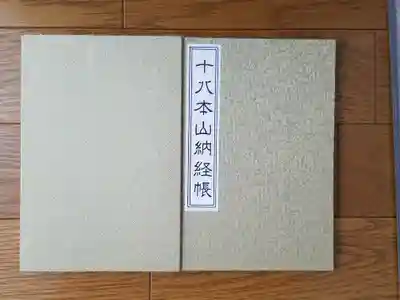 十八本山納経帳